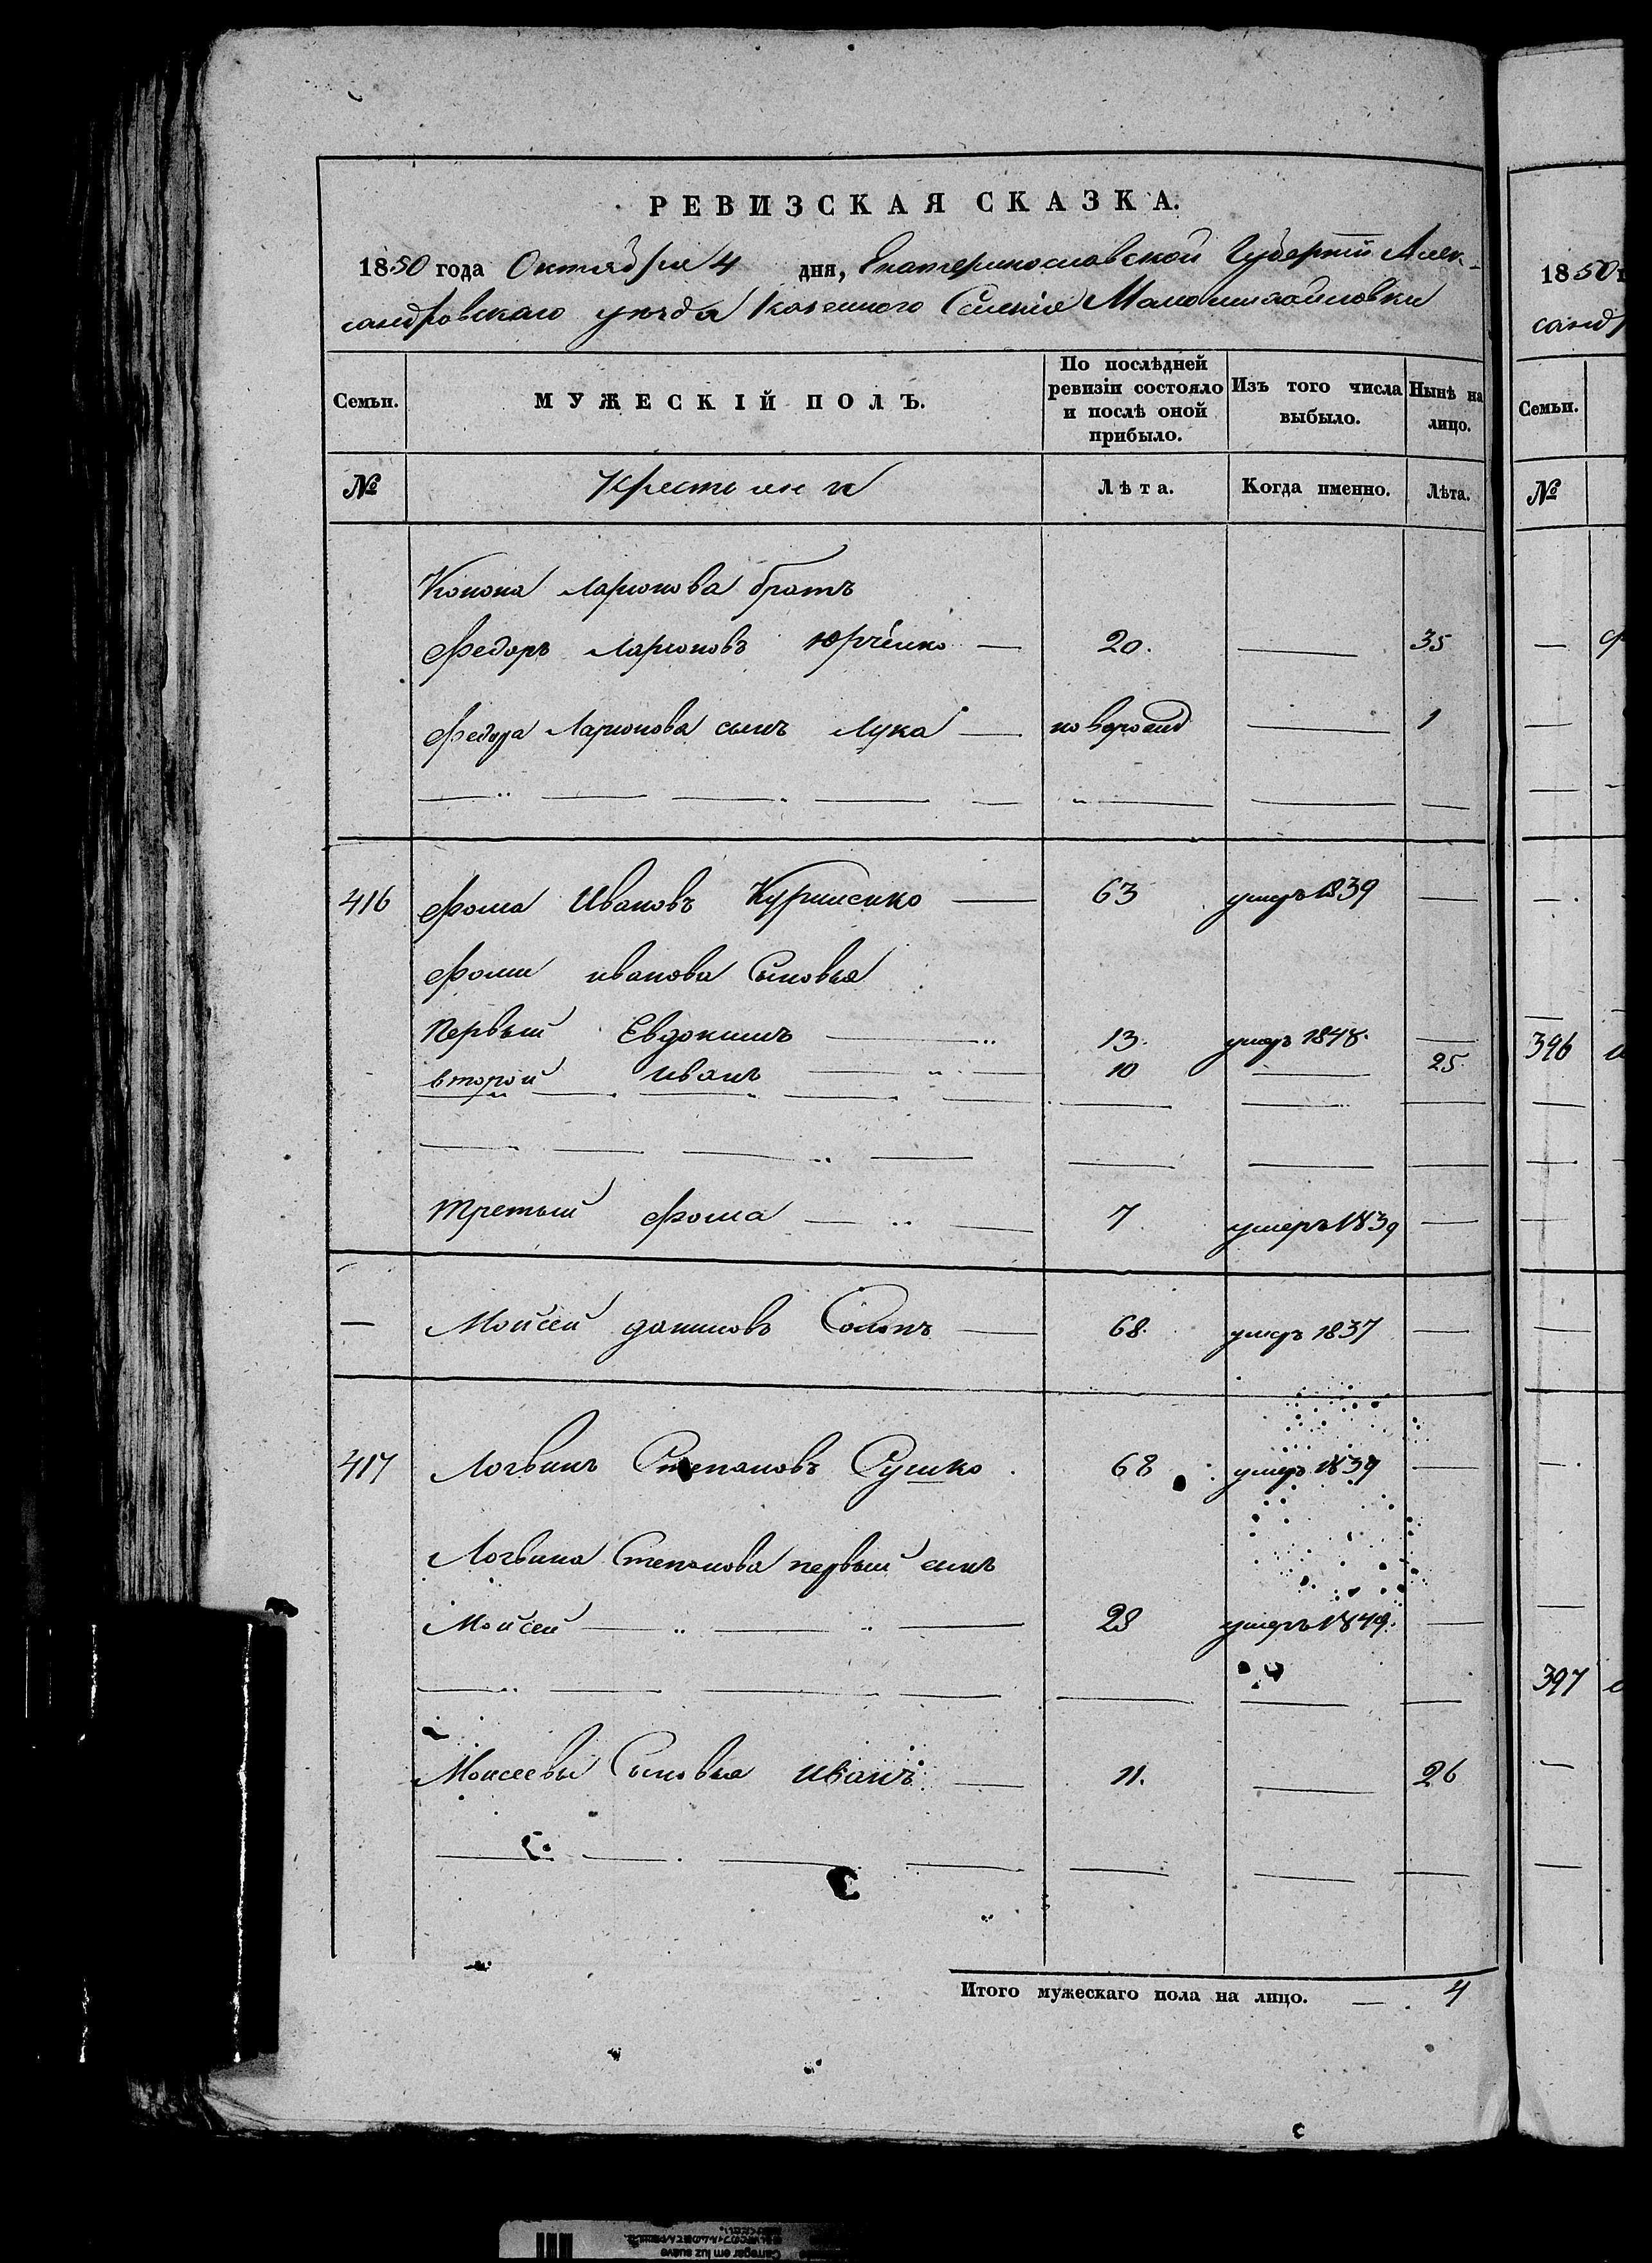 РЕВИЗСКАЯ СКАЗКА.
1850 года Октября 4 дня, Екатеринославской Губерніи Алек-
сандровскаго уезда Казенного Селенія Маломихайловки
Семьи. МУЖЕСКІЙ ПОЛЪ. По послѣдней ревизіи состояло и послѣ оной прибыло. Изъ того числа выбыло. Нынѣ на лицо.
№ Крестьяне Лѣта. Когда именно. Лѣта.
Конона Ларионова братъ
Федоръ Ларионовъ Юрченко — 20. — 35
Федора Ларионова сынъ Лука — новорожд — 1
416 Фома Ивановъ — 63 умеръ 1839 —
Фомы иванова Сыновья
Первый Евдокимъ — 13. умеръ 1848. —
второй иванъ — 10 — 25.
Третьий Фома — 7 умеръ 1839 —
— Мойсей — 68. умеръ 1837 —
417 Логвинъ Степановъ Сушко. 68 умеръ 1839 —
Логвина Степанова первый сынъ
Мойсей — 28 умеръ 1849. —
Моисеевы Сыновья иванъ — 11. — 26
Итого мужескаго пола на лицо. — 4
1850 г
санд
Семьи.
№
396
397
Carregar em luz suave